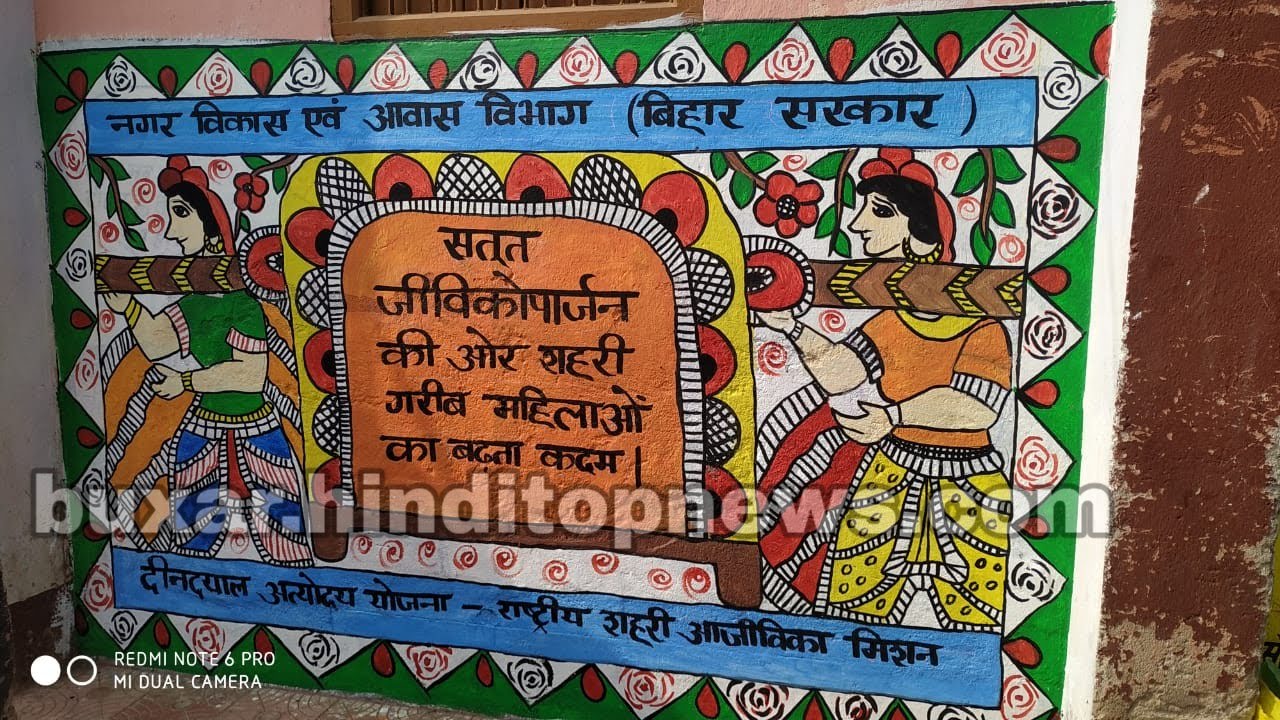 नगर विकास एवं आवास विभाग (बिहार सरकार)
सत्त
जीविकोपार्जन
की ओर शहरी
गरीब महिलाओं
का बढ़ता कदम |
दीनदयाल अत्योदय योजना - राष्ट्रीय शहरी आजीविका मिशन
REDMI NOTE 6 PRO
MI DUAL CAMERA